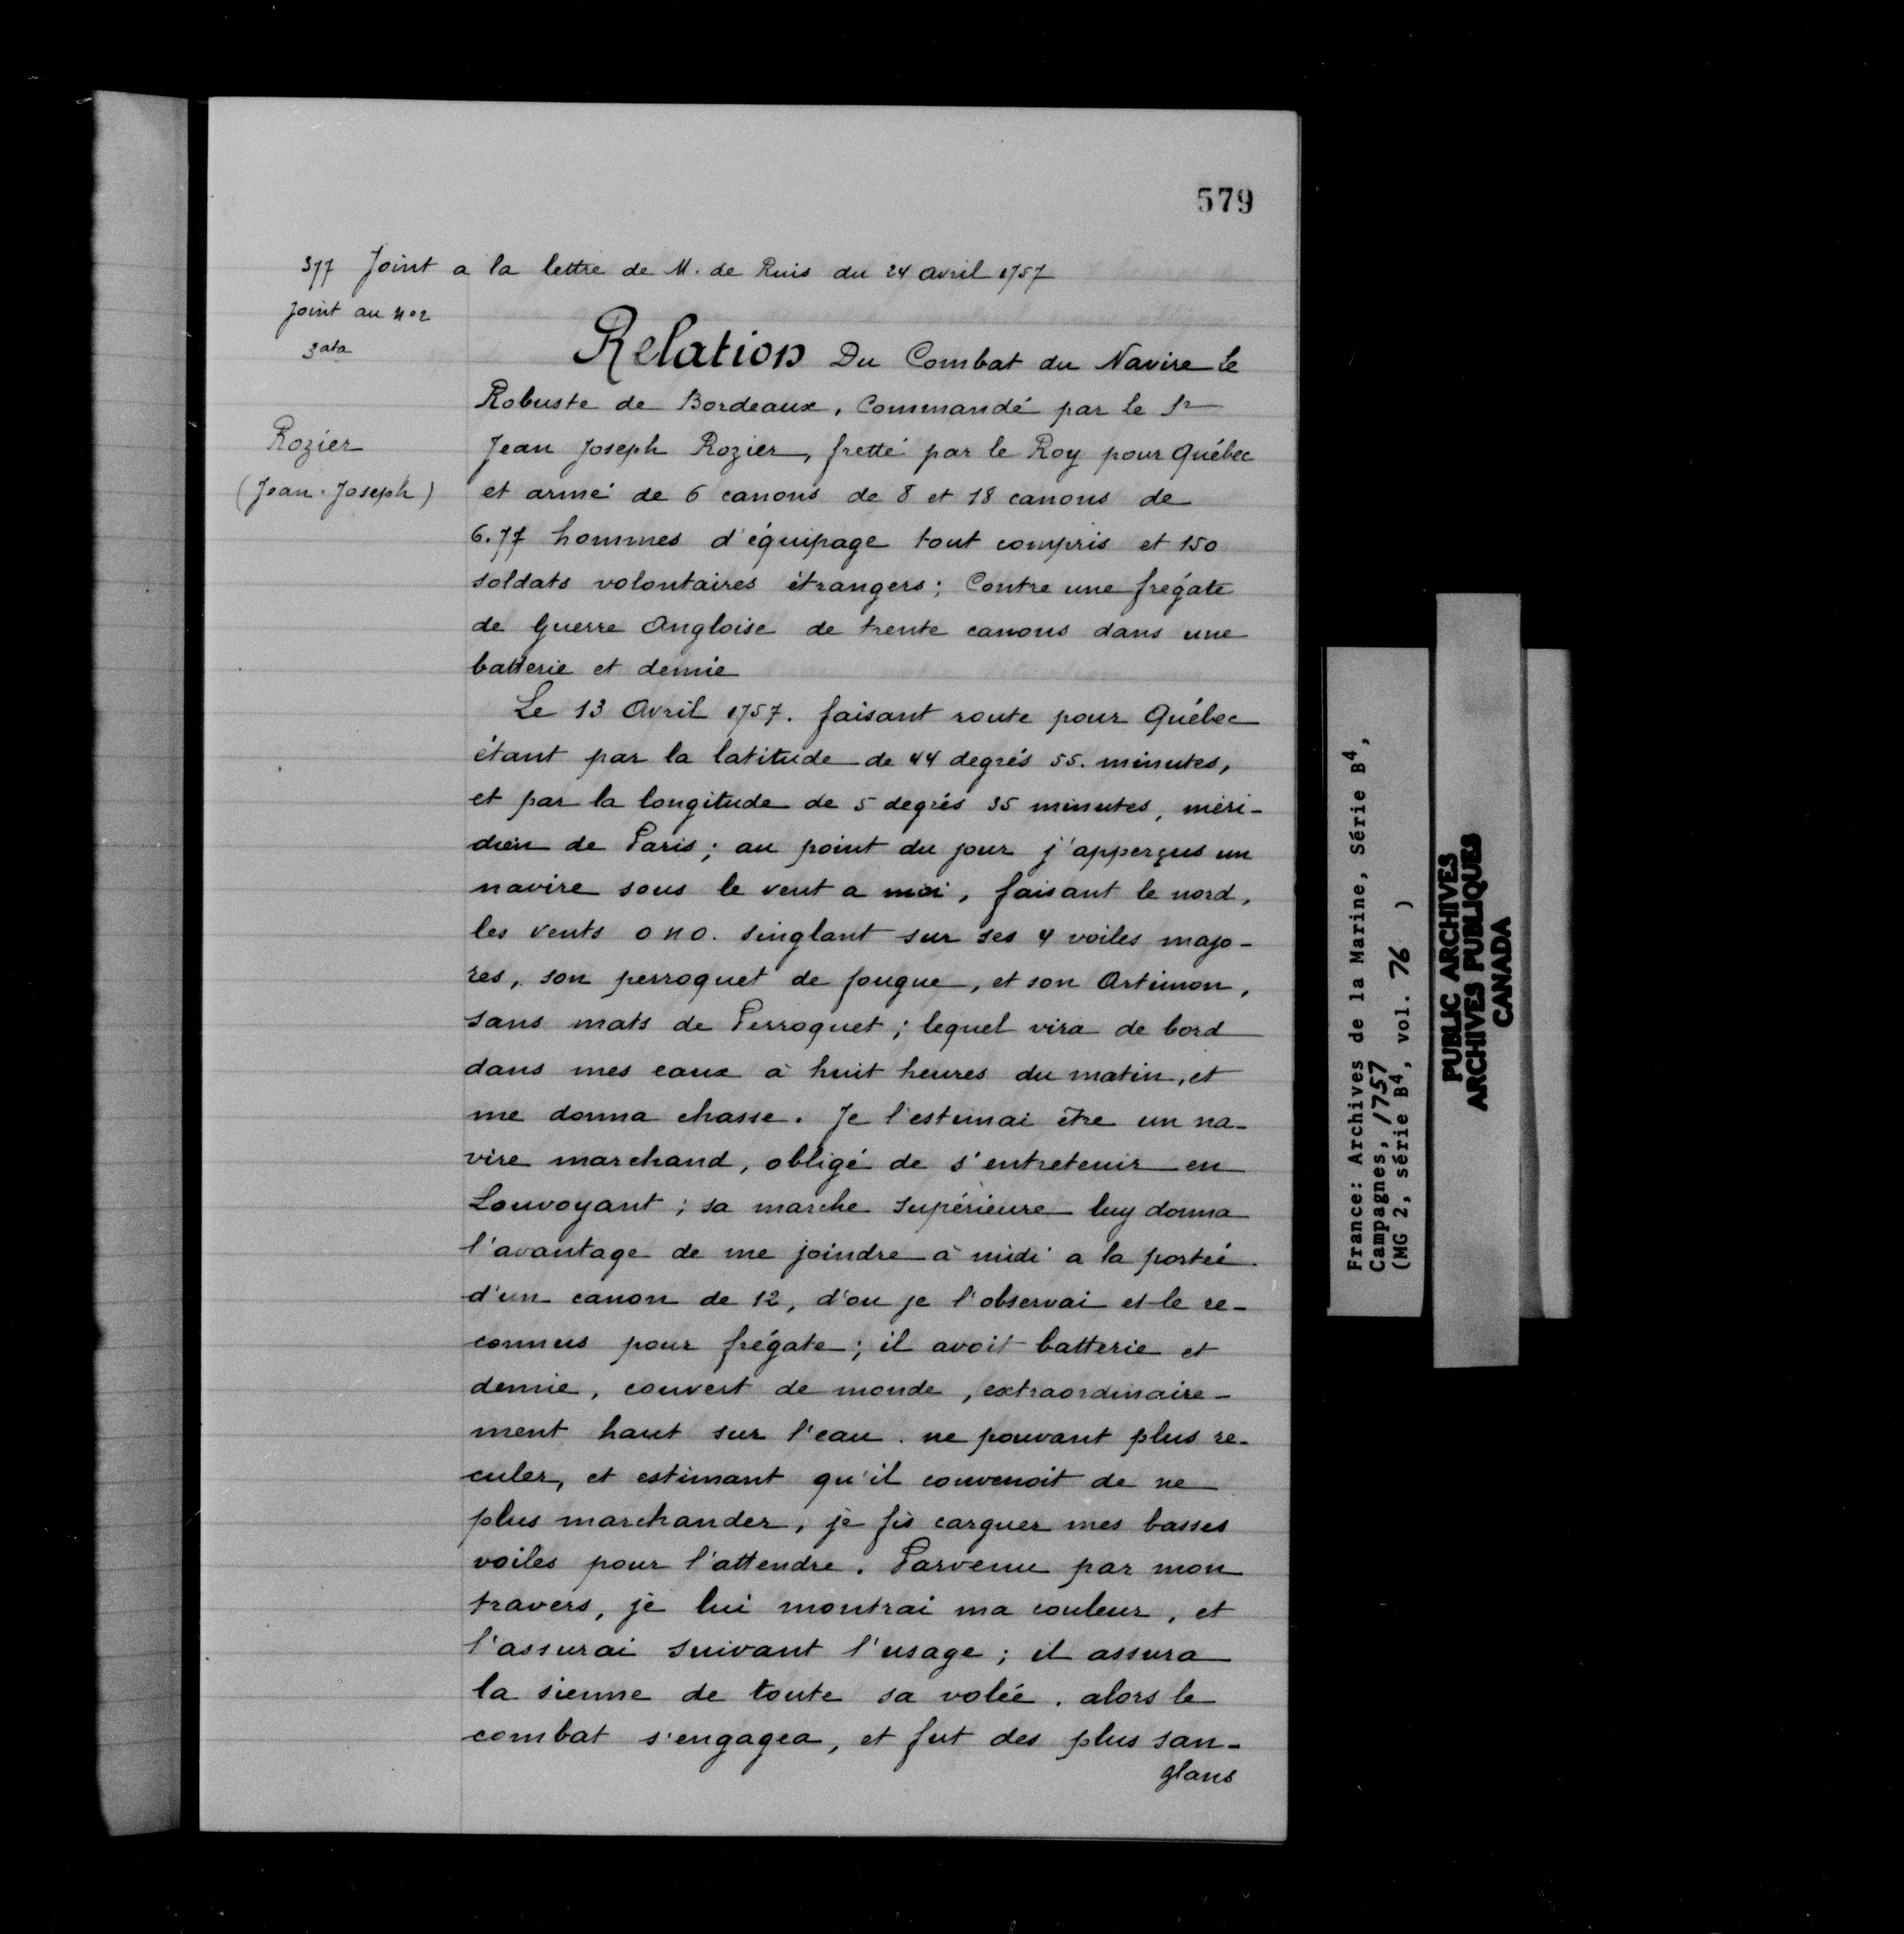 579
377 Joint a la lettre de M. de Ruis du 24 avril 1757
Joint au nº 2
3 ata
Relation Du Combat du Navire Le
Robuste de Bordeaux, Commandé par le Sr
Rozier
(Jean-Joseph)
Jean Joseph Rozier, fretté par le Roy pour Québec
et armé de 6 canons de 8 et 18 canons de
6. 77 hommes d'équipage tout compris et 150
soldats volontaires étrangers; Contre une frégate
de Guerre Angloise de trente canons dans une
batterie et demie
Le 13 Avril 1757. faisant route pour Québec
étant par la latitude de 44 degrés 55. minutes,
et par la longitude de 5 degrés 35 minutes, méri-
dien de Paris; au point du jour j'apperçus un
navire sous le vent a moi, faisant le nord,
les vents ono. singlant sur ses 4 voiles majo-
res, son perroquet de fougue, et son Artimon,
sans mats de Perroquet; lequel vira de bord
dans mes eaux à huit heures du matin, et
me donna chasse. Je l'estimai être un na-
vire marchand, obligé de s'entretenir en
Louvoyant; sa marche supérieure luy donna
l'avantage de me joindre à midi a la portée
d'un canon de 12, d'ou je l'observai et le re-
connus pour frégate; il avoit batterie et
demie, couvert de monde, extraordinaire-
ment haut sur l'eau. ne pouvant plus re-
culer, et estimant qu'il convenoit de ne
plus marchander, je fis carguer mes basses
voiles pour l'attendre. Parvenu par mon
travers, je lui montrai ma couleur, et
l'assurai suivant l'usage; il assura
la sienne de toute sa volée. alors le
combat s'engagea, et fut des plus san-
glans
France: Archives de la Marine, Série B4,
Campagnes, 1757
(MG 2, série B4, vol. 76 )
PUBLIC ARCHIVES
ARCHIVES PUBLIQUES
CANADA